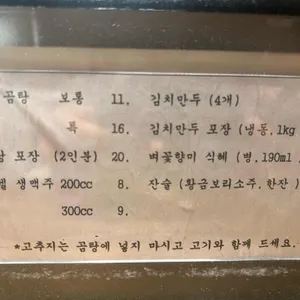 곰탕 보통 11. 김치만두 (4개)
특 16. 김치만두 포장 (냉동, 1kg
포장 (2인분) 20. 벼꽃향미 식혜 (병, 190ml
생맥주 200cc 8. 잔술 (황금보리소주, 한잔)
300cc 9.
*고추지는 곰탕에 넣지 마시고 고기와 함께 드세요.